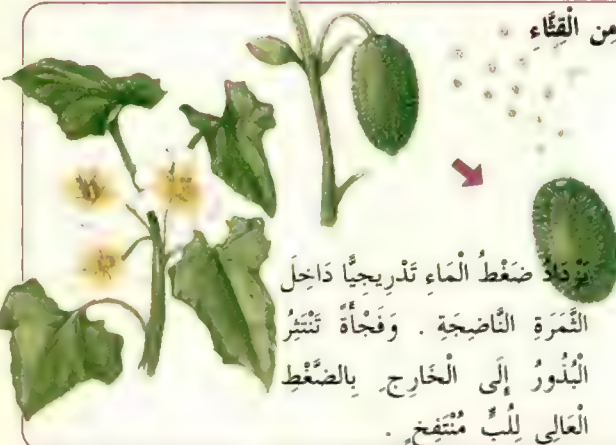 مِن الْقِثَّاءِ
يَزْدَادُ ضَغْطُ الْمَاءِ تَدْرِيجِيًّا دَاخِلَ
الثَّمَرَةِ النَّاضِجَةِ . وَفَجْأَةً تَنْتَثِرُ
الْبُذُورُ إِلَى الْخَارِجِ بِالضَّغْطِ
الْعَالِي لِلُبٍّ مُنْتَفِخٍ .